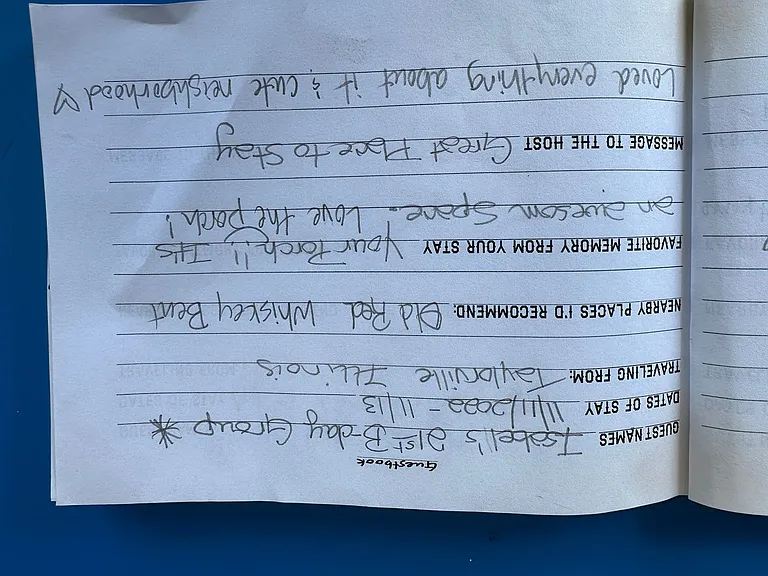 Guestbook
GUEST NAMES Isabell's 21st B-day Group *
DATES OF STAY 11/11/2022 - 11/13
TRAVELING FROM: Taylorville Illinois
NEARBY PLACES I'D RECOMMEND: Old Red Whiskey Bent
FAVORITE MEMORY FROM YOUR STAY Your Porch!! It's
an awesom space. Love the porch!
MESSAGE TO THE HOST Great Place to Stay
Loved everything about it & cute neighborhood ♡